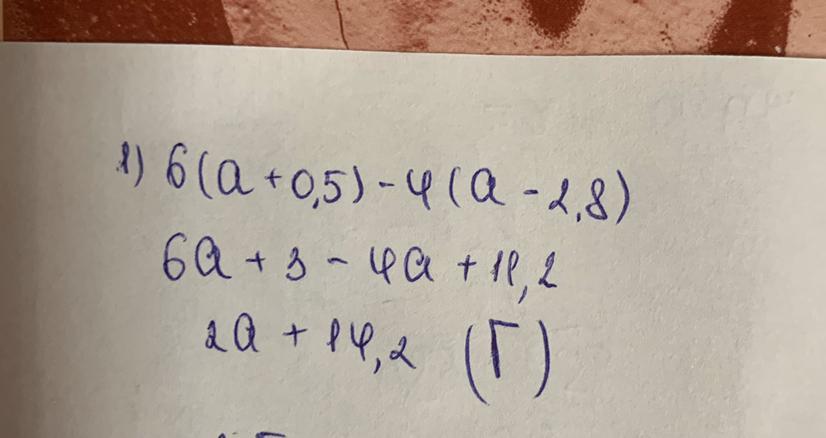 1) 6(a + 0,5) - 4(a - 2,8)
6a + 3 - 4a + 11,2
2a + 14,2 (Г)